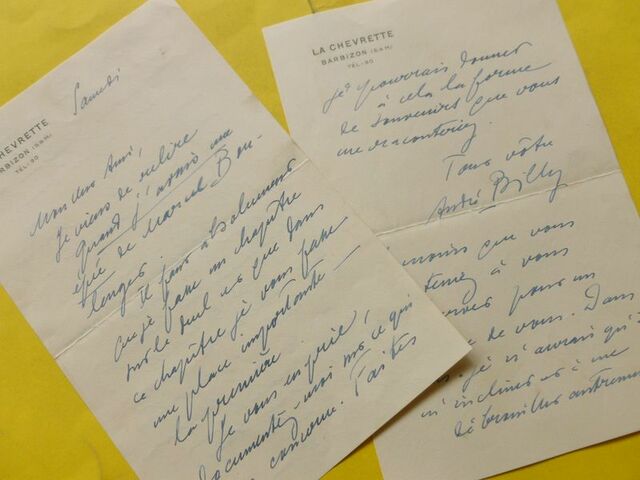 CHEVRETTE
BARBIZON (S&M)
TEL: 90
Samedi
Mon cher Ami,
Je viens de relire
Quand j'avais une
épée de Marcel Bou-
lenger.
Il faut absolument
que je fasse un chapitre
sur le duel et que dans
ce chapitre je vous fasse
une place importante —
la première.
Je vous en prie,
documentez-moi sur ce qui
concerne. Faites
LA CHEVRETTE
BARBIZON (S&M)
TEL: 90
Je pourrais donner
à cela la forme
de souvenirs que vous
me raconteriez.
Tout vôtre
André Billy
moins que vous
teniez à vous
pour un
de vous. Dans
je n'aurai qu'à
m'incliner et à me
débrouiller autrement